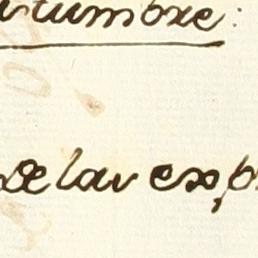 stumbre:
de las exp